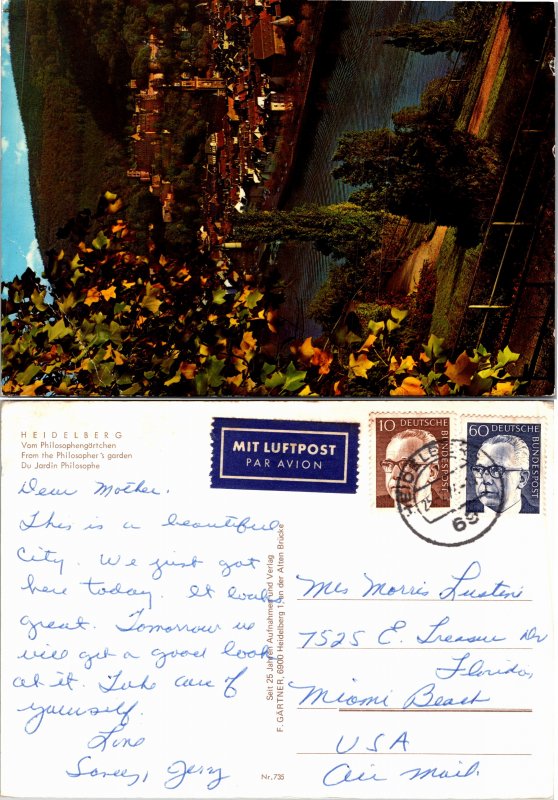 HEIDELBERG
Vom Philosophengärtchen
From the Philosopher's garden
Du Jardin Philosophe
MIT LUFTPOST
PAR AVION
10 DEUTSCHE BUNDESPOST
60 DEUTSCHE BUNDESPOST
HEIDELBERG
69
Dear Mother.
This is a beautiful
City. We just got
here today. It looks
great. Tomorrow we
will get a good look
at it. Take care of
yourself.
Love
Jerry
Seit 25 Jahren Aufnahmen und Verlag
F. GÄRTNER, 6900 Heidelberg 1 an der Alten Brücke
Nr. 735
Mrs Morris Lustini
7525 E. Treasure Dr
Florida,
Miami Beach
USA
Air mail.